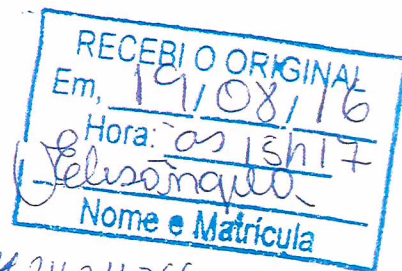 RECEBI O ORIGINAL
Em, 19/08/16
Hora: às 15h17
Elisângela
Nome e Matrícula